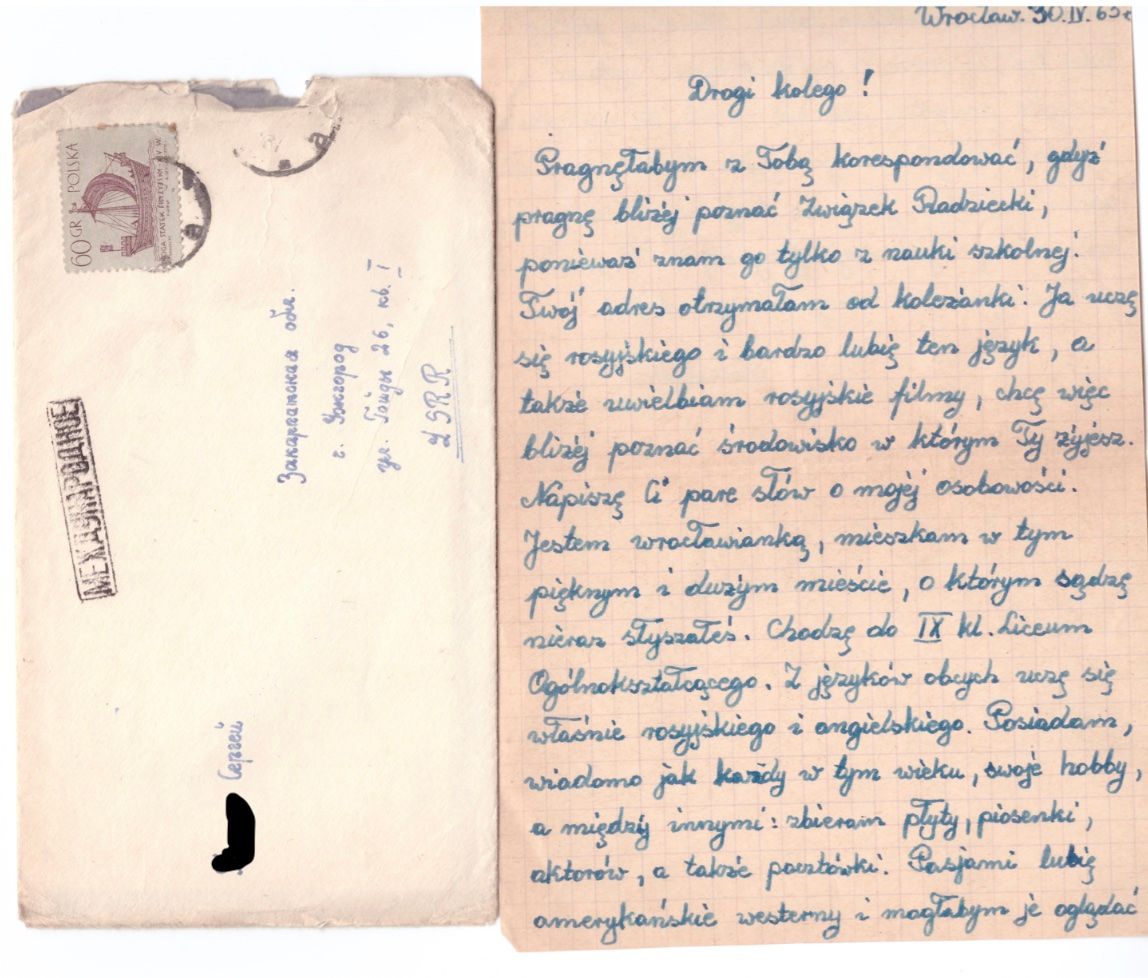 60 GR POLSKA
МЕЖДУНАРОДНОЕ
Закарпатская обл.
г. Ужгород
ул. Гойды 26, кв. I
ZSRR
Сергей
Wrocław. 30.IV.65
Drogi kolego!
Pragnęłabym z Tobą korespondować, gdyż
pragnę bliżej poznać Związek Radziecki,
ponieważ znam go tylko z nauki szkolnej.
Twój adres otrzymałam od koleżanki. Ja uczę
się rosyjskiego i bardzo lubię ten język, a
także uwielbiam rosyjskie filmy, chcę więc
bliżej poznać środowisko w którym Ty żyjesz.
Napiszę Ci pare słów o mojej osobowości.
Jestem wrocławianką, mieszkam w tym
pięknym i dużym mieście, o którym sądzę
nieraz słyszałeś. Chodzę do IX kl. Liceum
Ogólnokształcącego. Z języków obcych uczę się
właśnie rosyjskiego i angielskiego. Posiadam,
wiadomo jak każdy w tym wieku, swoje hobby,
a między innymi: zbieram płyty, piosenki,
aktorów, a także pocztówki. Pasjami lubię
amerykańskie westerny i mogłabym je oglądać